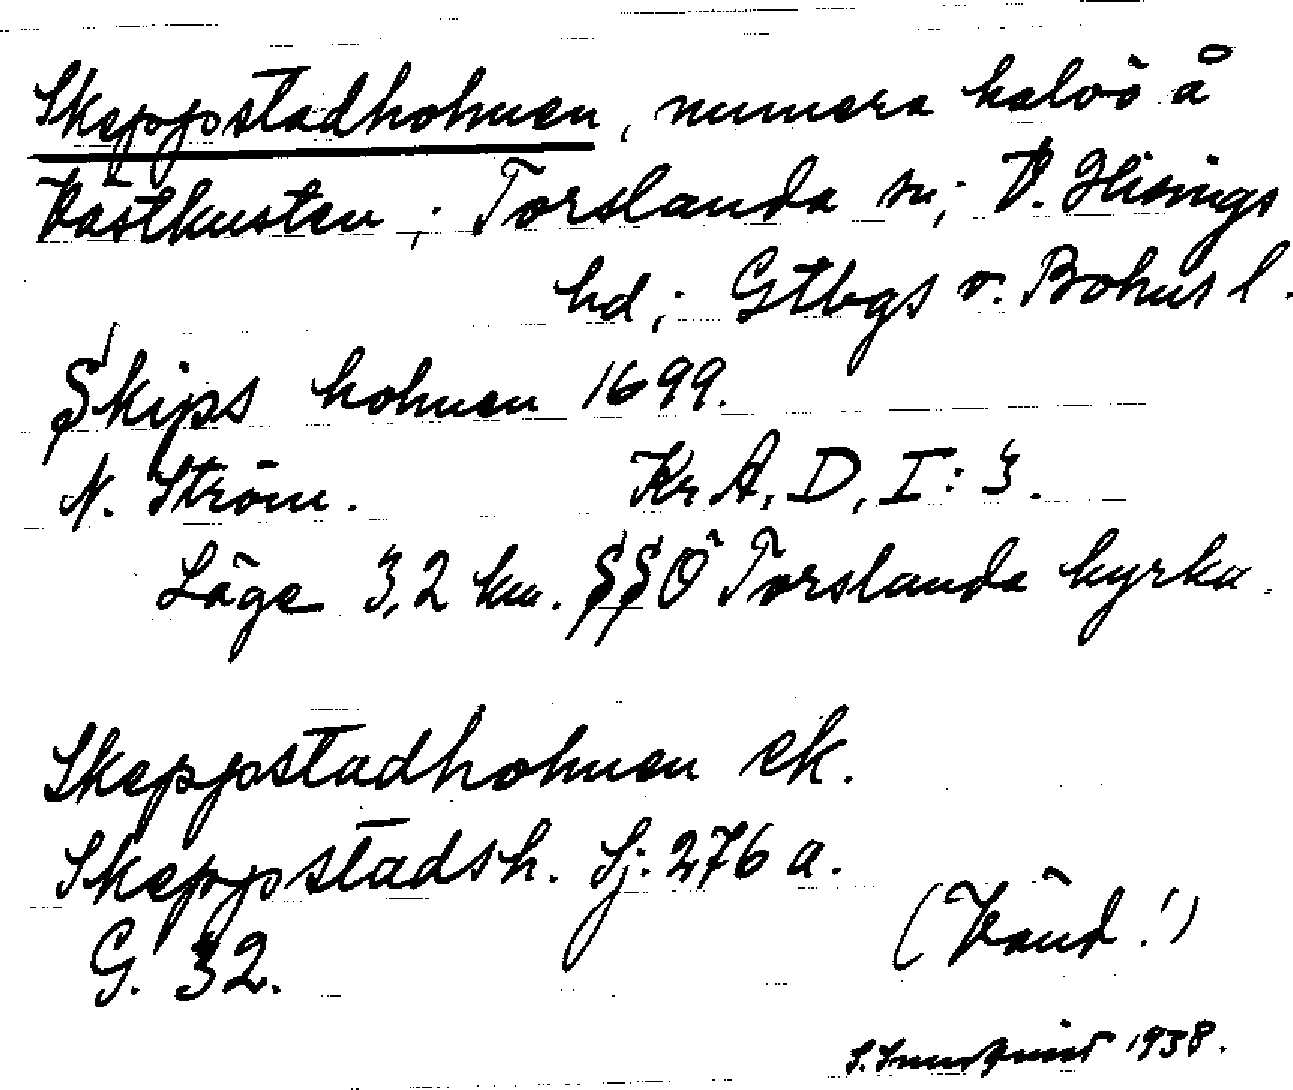 Skeppstadholmen, numera halvö å
Västkusten; Torslanda sn; V. Hisings
hd; Gtbgs o. Bohus l.
Skips holmen 1699.
N. Ström. Kr A, D, I: 3.
Läge 3,2 km. SSÖ Torslanda kyrka.
Skeppstadholmen ek.
Skeppstadsh. Sj. 276 a.
G. 32.
(Vänd!)
S. 1938.